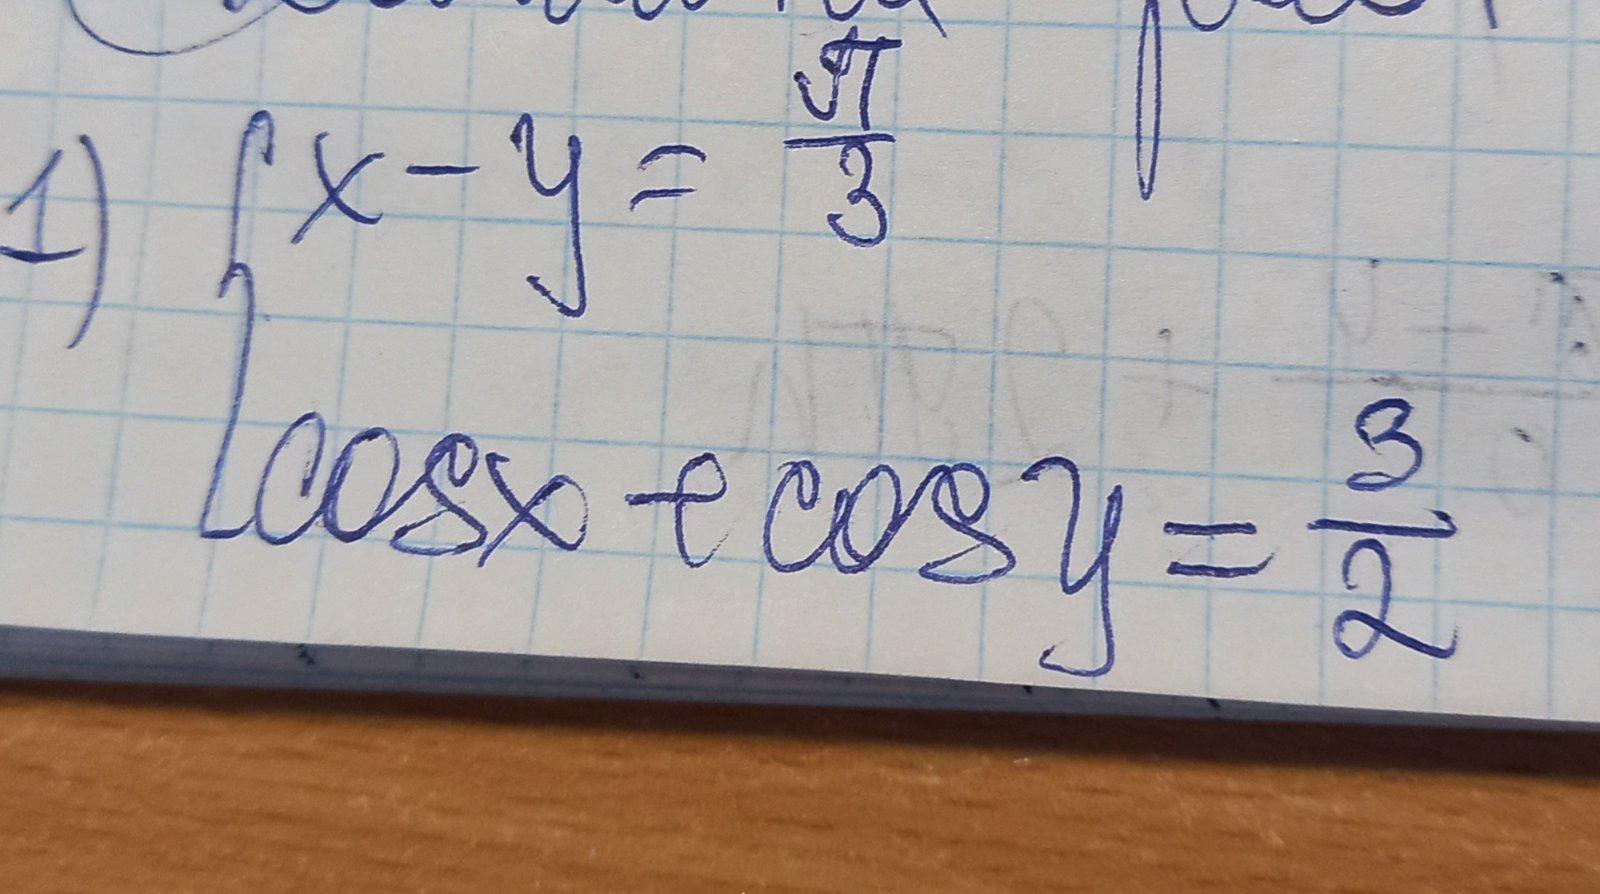 1) { x - y = π/3
cos x + cos y = 3/2